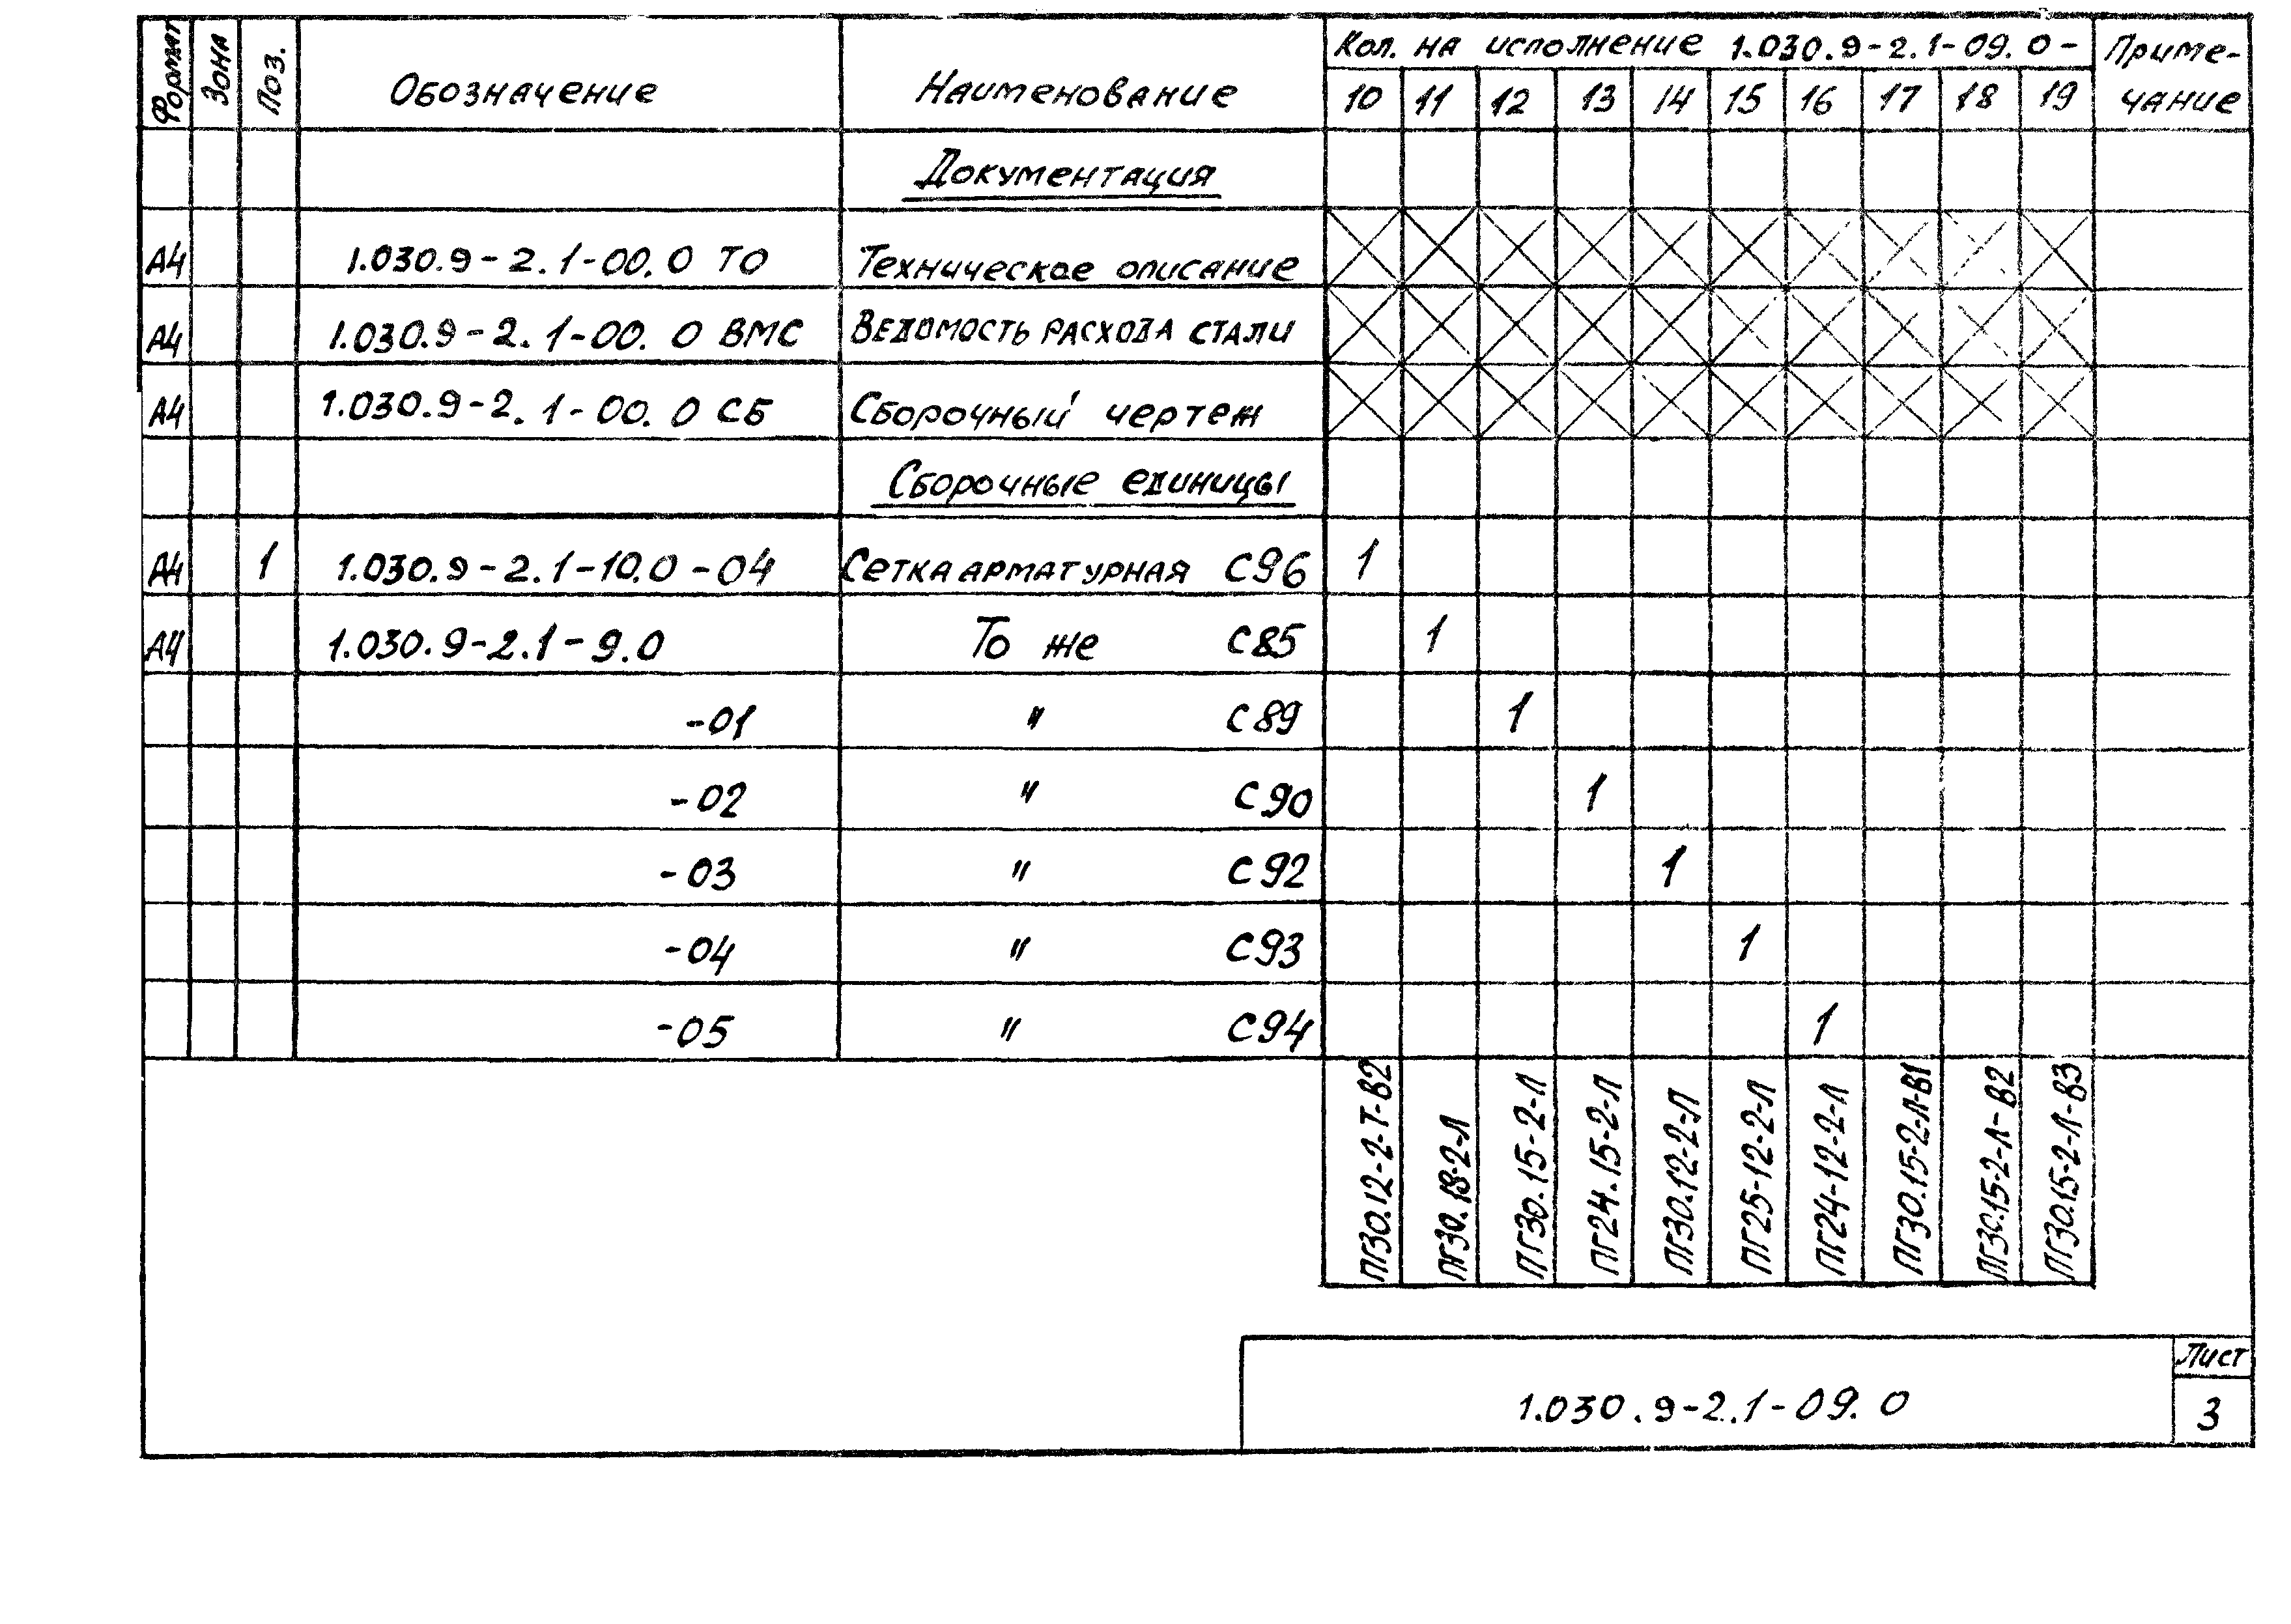 Формат Зона Поз. Обозначение Наименование Кол. на исполнение 1.030.9-2.1-09.0- Приме-
чание
10 11 12 13 14 15 16 17 18 19
Документация
А4 1.030.9-2.1-00.0 ТО Техническое описание
А4 1.030.9-2.1-00.0 ВМС Ведомость расхода стали
А4 1.030.9-2.1-00.0 СБ Сборочный чертеж
Сборочные единицы
А4 1 1.030.9-2.1-10.0-04 Сетка арматурная С96 1
А4 1.030.9-2.1-9.0 То же С85 1
-01 " С89 1
-02 " С90 1
-03 " С92 1
-04 " С93 1
-05 " С94 1
ПГ30.12-2-Т-В2
ПГ30.18-2-Л
ПГ30.15-2-Л
ПГ24.15-2-Л
ПГ30.12-2-Л
ПГ25-12-2-Л
ПГ24-12-2-Л
ПГ30.15-2-Л-В1
ПГ30.15-2-Л-В2
ПГ30.15-2-Л-В3
1.030.9-2.1-09.0
Лист
3